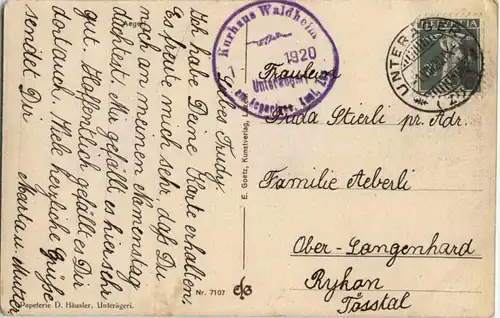 Liebes Trudy.
Ich habe Deine Karte erhalten.
Es freut mich sehr, daß Du
noch an meinen Namenstag
dachtest. Mir gefällt es hier sehr
gut. Hoffentlich gefällt es Dir
dort auch. Viele herzliche Grüße
sendet Dir
Marta u. Mutter
Aegeri
Papeterie D. Häusler, Unterägeri.
Nr. 7107
E. Goetz, Kunstverlag,
Kurhaus Waldheim
1920
Unterägeri
HELVETIA
UNTERÄGERI
Fräulein
Frida Stierli pr. Adr.
Familie Aeberli
Ober-Langenhard
Rykon
Tösstal